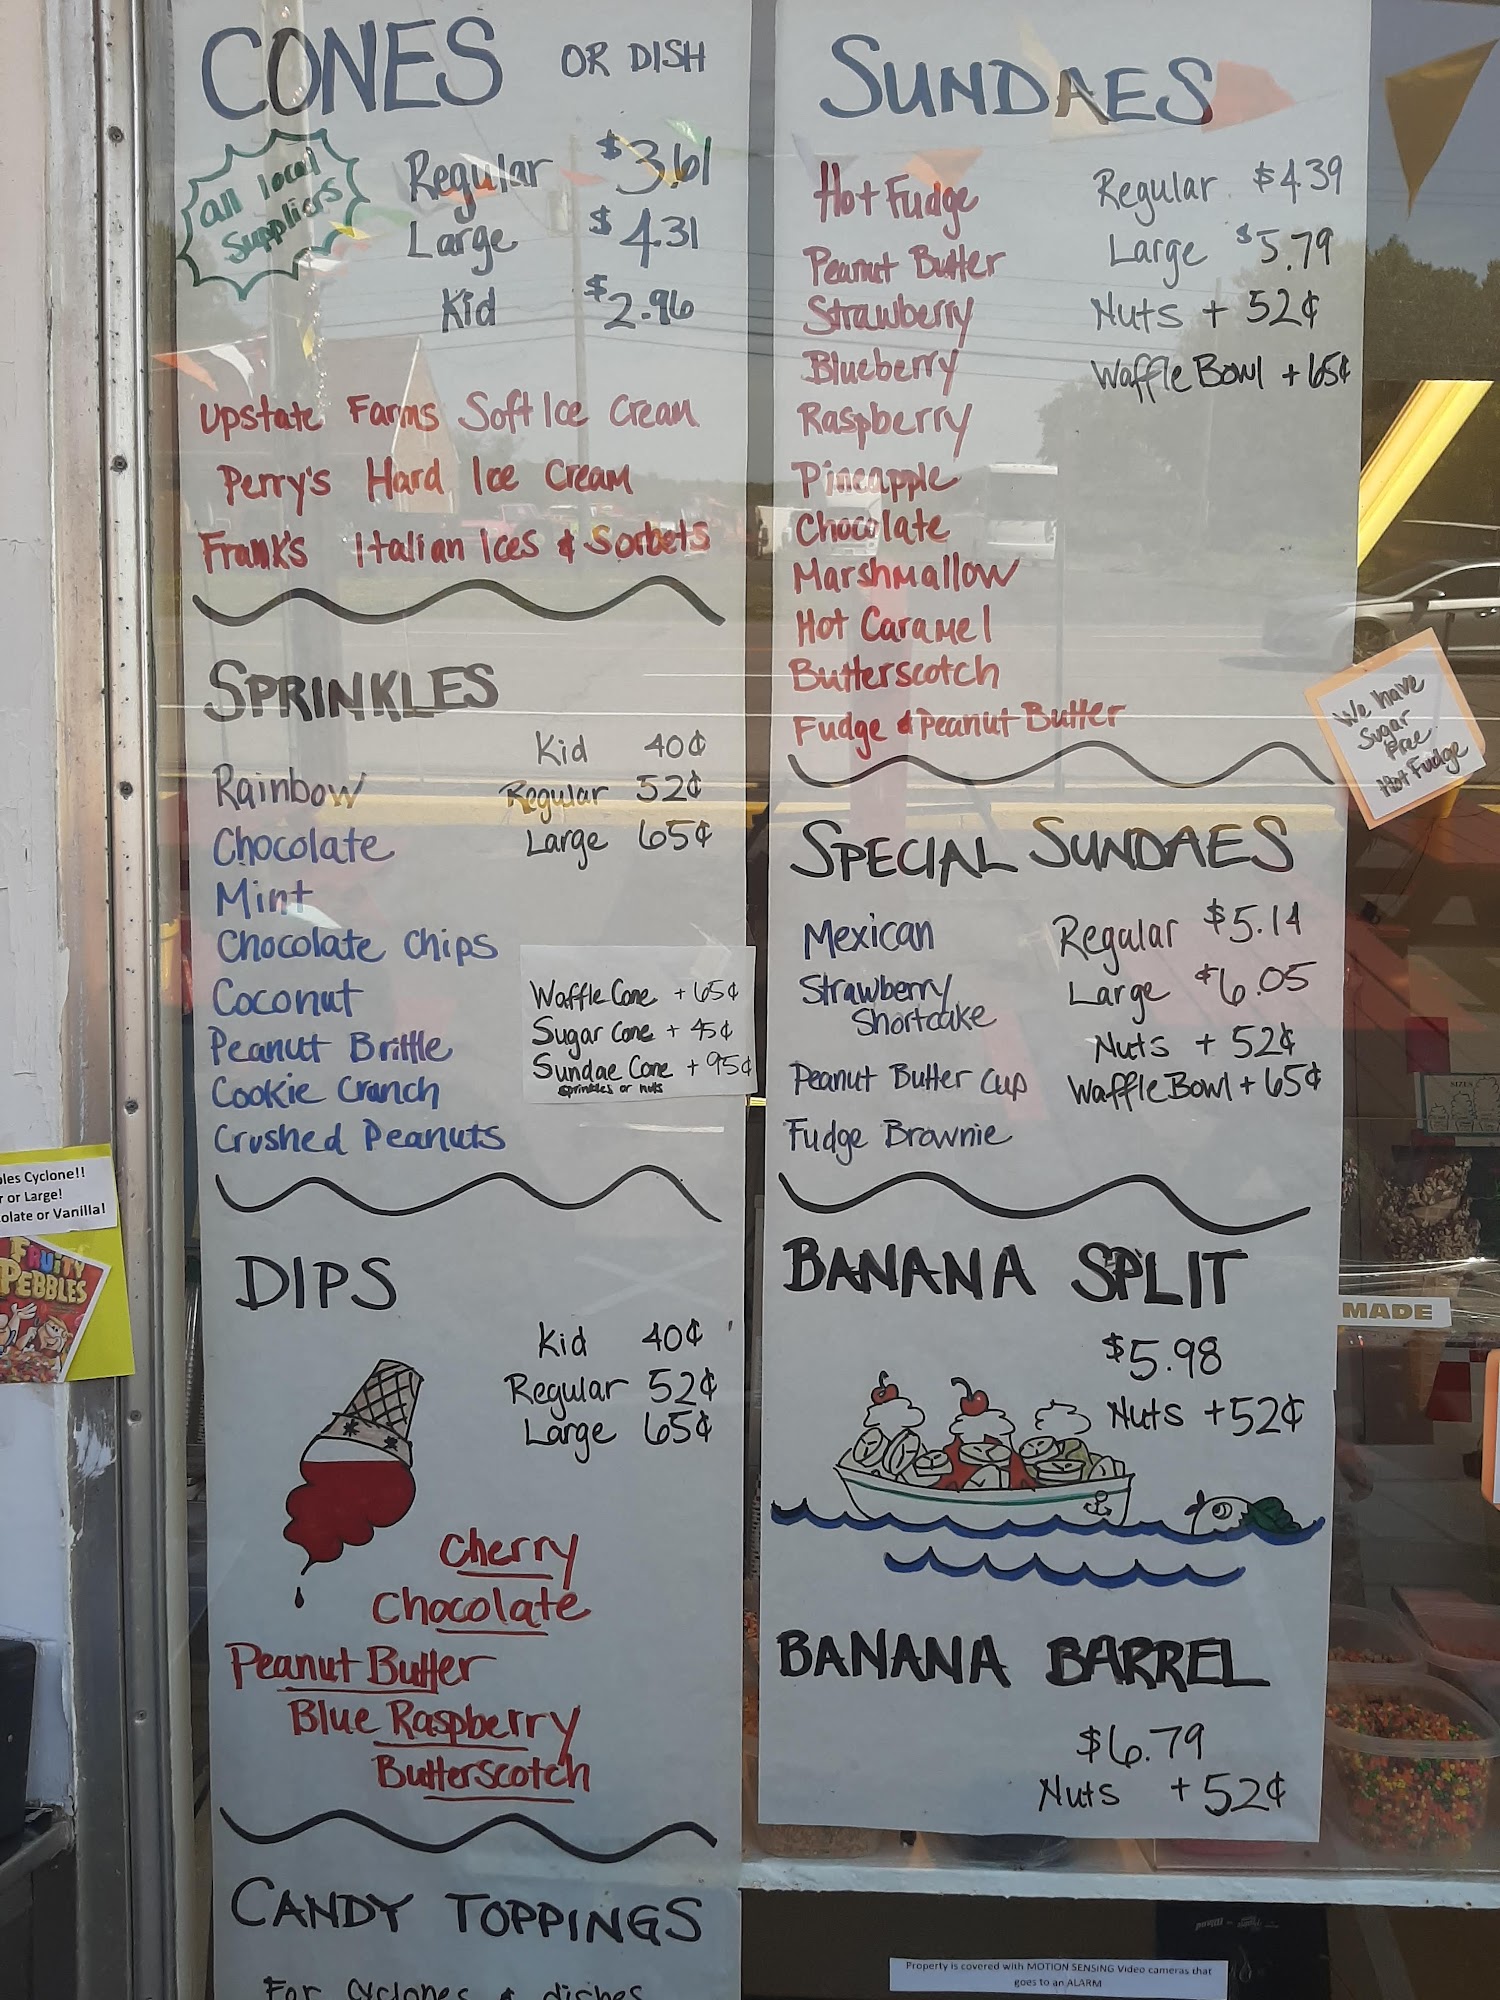 CONES OR DISH
all local
suppliers
Regular $3.61
Large $4.31
Kid $2.96
Upstate Farms Soft Ice Cream
Perry's Hard Ice Cream
Frank's Italian Ices & Sorbets
SPRINKLES
Kid 40¢
Rainbow Regular 52¢
Chocolate Large 65¢
Mint
Chocolate Chips
Coconut
Peanut Brittle
Cookie Crunch
Crushed Peanuts
Waffle Cone + 65¢
Sugar Cone + 45¢
Sundae Cone + 95¢
sprinkles or nuts
DIPS
Kid 40¢
Regular 52¢
Large 65¢
Cherry
Chocolate
Peanut Butter
Blue Raspberry
Butterscotch
CANDY TOPPINGS
For Cyclones & dishes
SUNDAES
Hot Fudge Regular $4.39
Peanut Butter Large $5.79
Strawberry Nuts + 52¢
Blueberry Waffle Bowl + 65¢
Raspberry
Pineapple
Chocolate
Marshmallow
Hot Caramel
Butterscotch
Fudge & Peanut Butter
We have
Sugar
Free
Hot Fudge
SPECIAL SUNDAES
Mexican Regular $5.14
Strawberry Large $6.05
Shortcake
Nuts + 52¢
Peanut Butter Cup Waffle Bowl + 65¢
Fudge Brownie
BANANA SPLIT
$5.98
Nuts +52¢
BANANA BARREL
$6.79
Nuts +52¢
Cyclone!!
or Large!
or Vanilla!
FRUITY
PEBBLES
SIZES
MADE
Property is covered with MOTION SENSING Video cameras that
goes to an ALARM